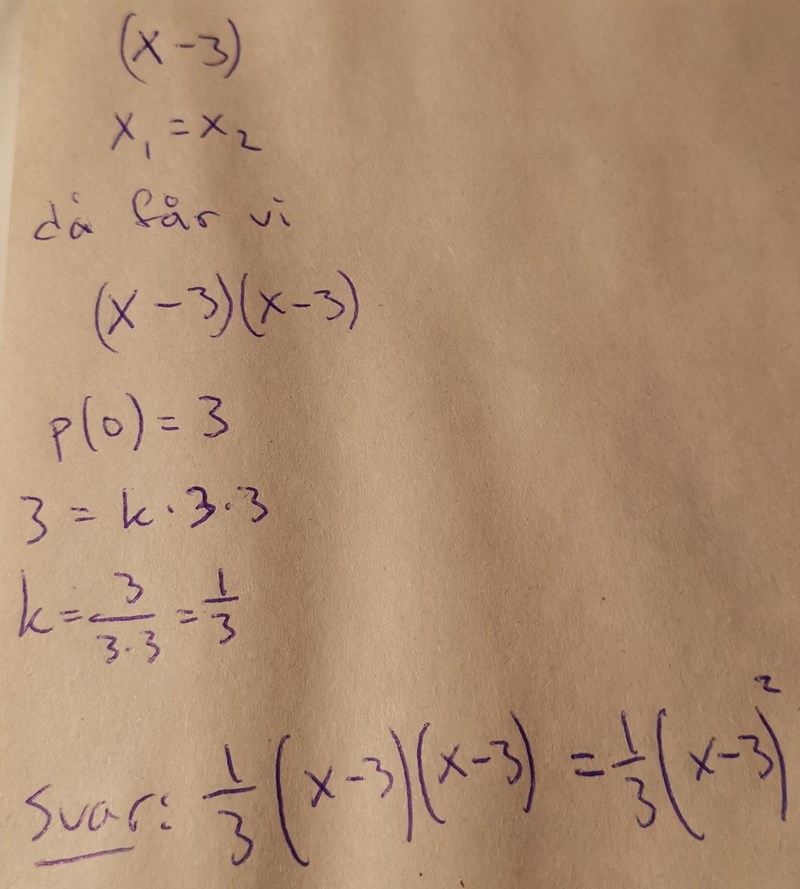 (x-3)
x₁ = x₂
då får vi
(x-3)(x-3)
p(0) = 3
3 = k·3·3
k = 3/(3·3) = 1/3
Svar: 1/3 (x-3)(x-3) = 1/3 (x-3)²